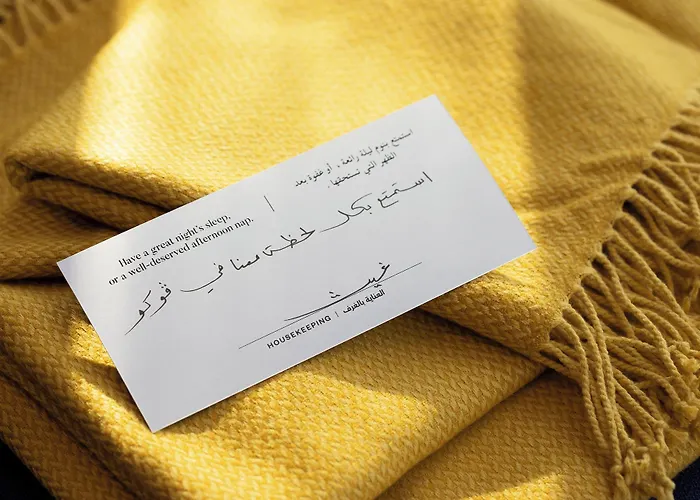 Have a great night's sleep,
or a well-deserved afternoon nap.
استمتع بنوم ليلة رائعة، أو غفوة بعد
الظهر التي تستحقها.
استمتع بكل لحظة معنا في ڤوكو
غيث
HOUSEKEEPING | العناية بالغرف